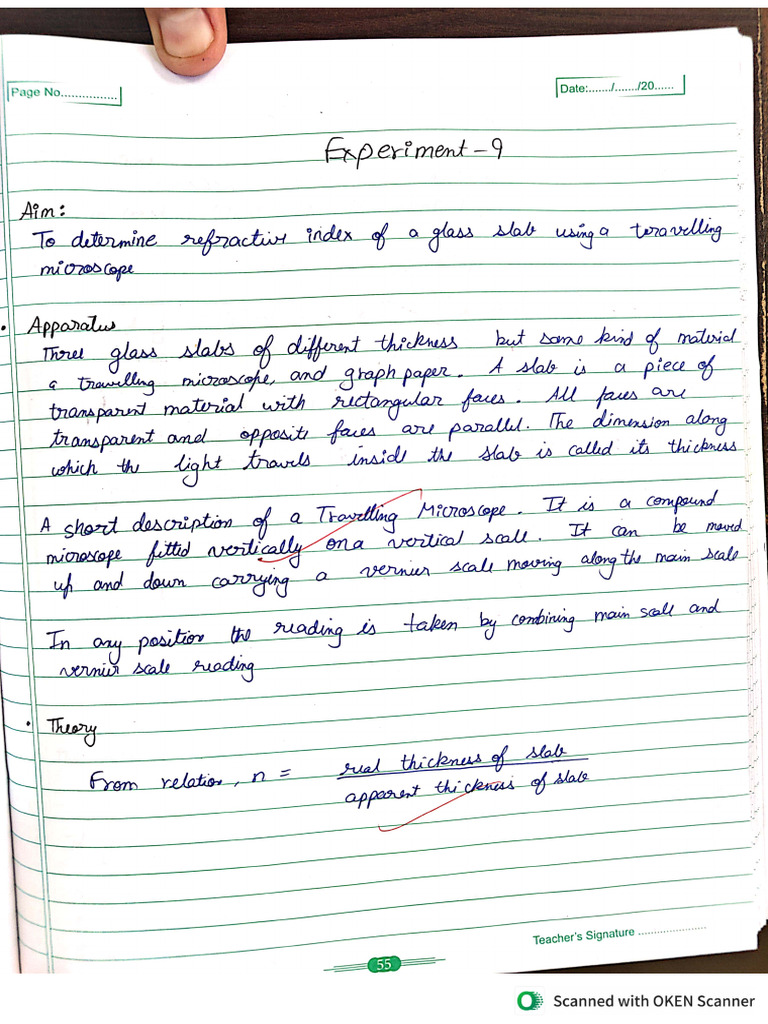 Page No................
Date:......./......./20......
Experiment - 9
Aim:
To determine refractive index of a glass slab using a teravelling
microscope
• Apparatus
Three glass slabs of different thickness but same kind of material
a travelling microscope, and graph paper. A slab is a piece of
transparent material with rectangular faces. All faces are
transparent and opposite faces are parallel. The dimension along
which the light travels inside the slab is called its thickness
A short description of a Travelling Microscope. It is a compound
microscope fitted vertically on a vertical scale. It can be moved
up and down carrying a vernier scale moving along the main scale
In any position the reading is taken by combining main scale and
vernier scale reading
• Theory
From relation, n = real thickness of slab
apparent thickness of slab
Teacher's Signature ......................
55
Scanned with OKEN Scanner